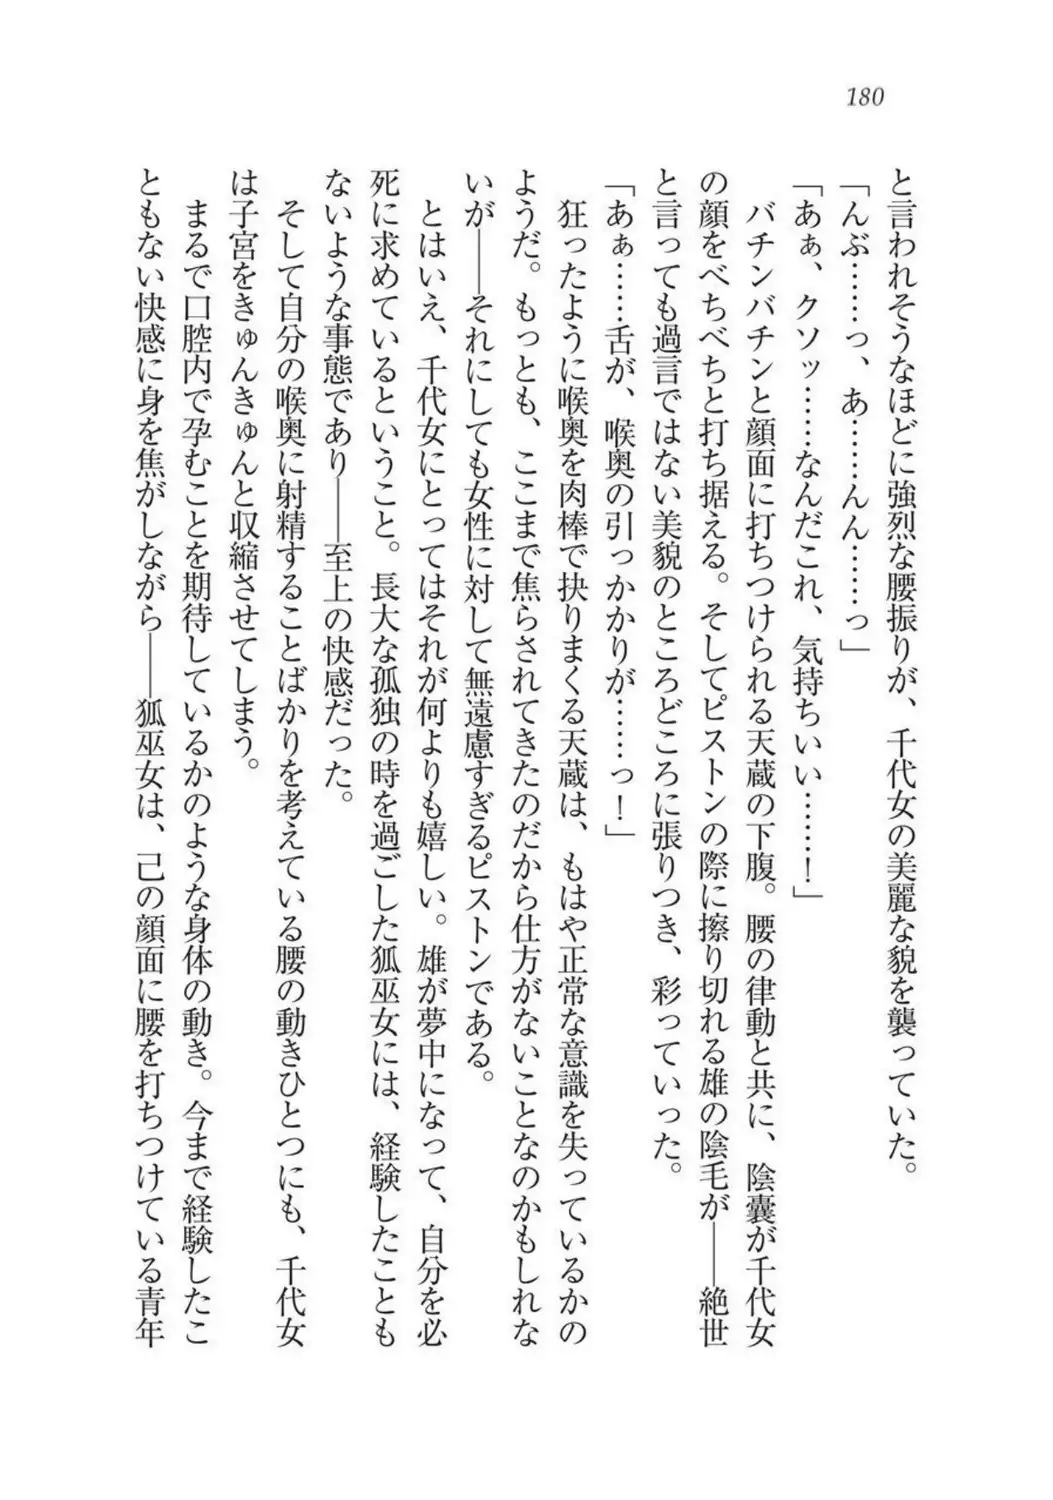 180
と言われそうなほどに強烈な腰振りが、千代女の美麗な貌を襲っていた。
「んぶ……っ、あ……んん……っ」
「あぁ、クソッ……なんだこれ、気持ちいい……！」
　バチンバチンと顔面に打ちつけられる天蔵の下腹。腰の律動と共に、陰嚢が千代女
の顔をべちべちと打ち据える。そしてピストンの際に擦り切れる雄の陰毛が――絶世
と言っても過言ではない美貌のところどころに張りつき、彩っていった。
「あぁ……舌が、喉奥の引っかかりが……っ！」
　狂ったように喉奥を肉棒で抉りまくる天蔵は、もはや正常な意識を失っているかの
ようだ。もっとも、ここまで焦らされてきたのだから仕方がないことなのかもしれな
いが――それにしても女性に対して無遠慮すぎるピストンである。
　とはいえ、千代女にとってはそれが何よりも嬉しい。雄が夢中になって、自分を必
死に求めているということ。長大な孤独の時を過ごした狐巫女には、経験したことも
ないような事態であり――至上の快感だった。
　そして自分の喉奥に射精することばかりを考えている腰の動きひとつにも、千代女
は子宮をきゅんきゅんと収縮させてしまう。
　まるで口腔内で孕むことを期待しているかのような身体の動き。今まで経験したこ
ともない快感に身を焦がしながら――狐巫女は、己の顔面に腰を打ちつけている青年